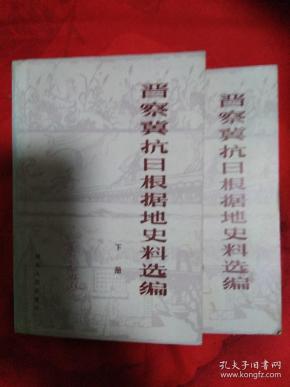 晋察冀抗日根据地史料选编
下册
河北人民出版社
晋察冀抗日根据地史料选编
孔夫子旧书网